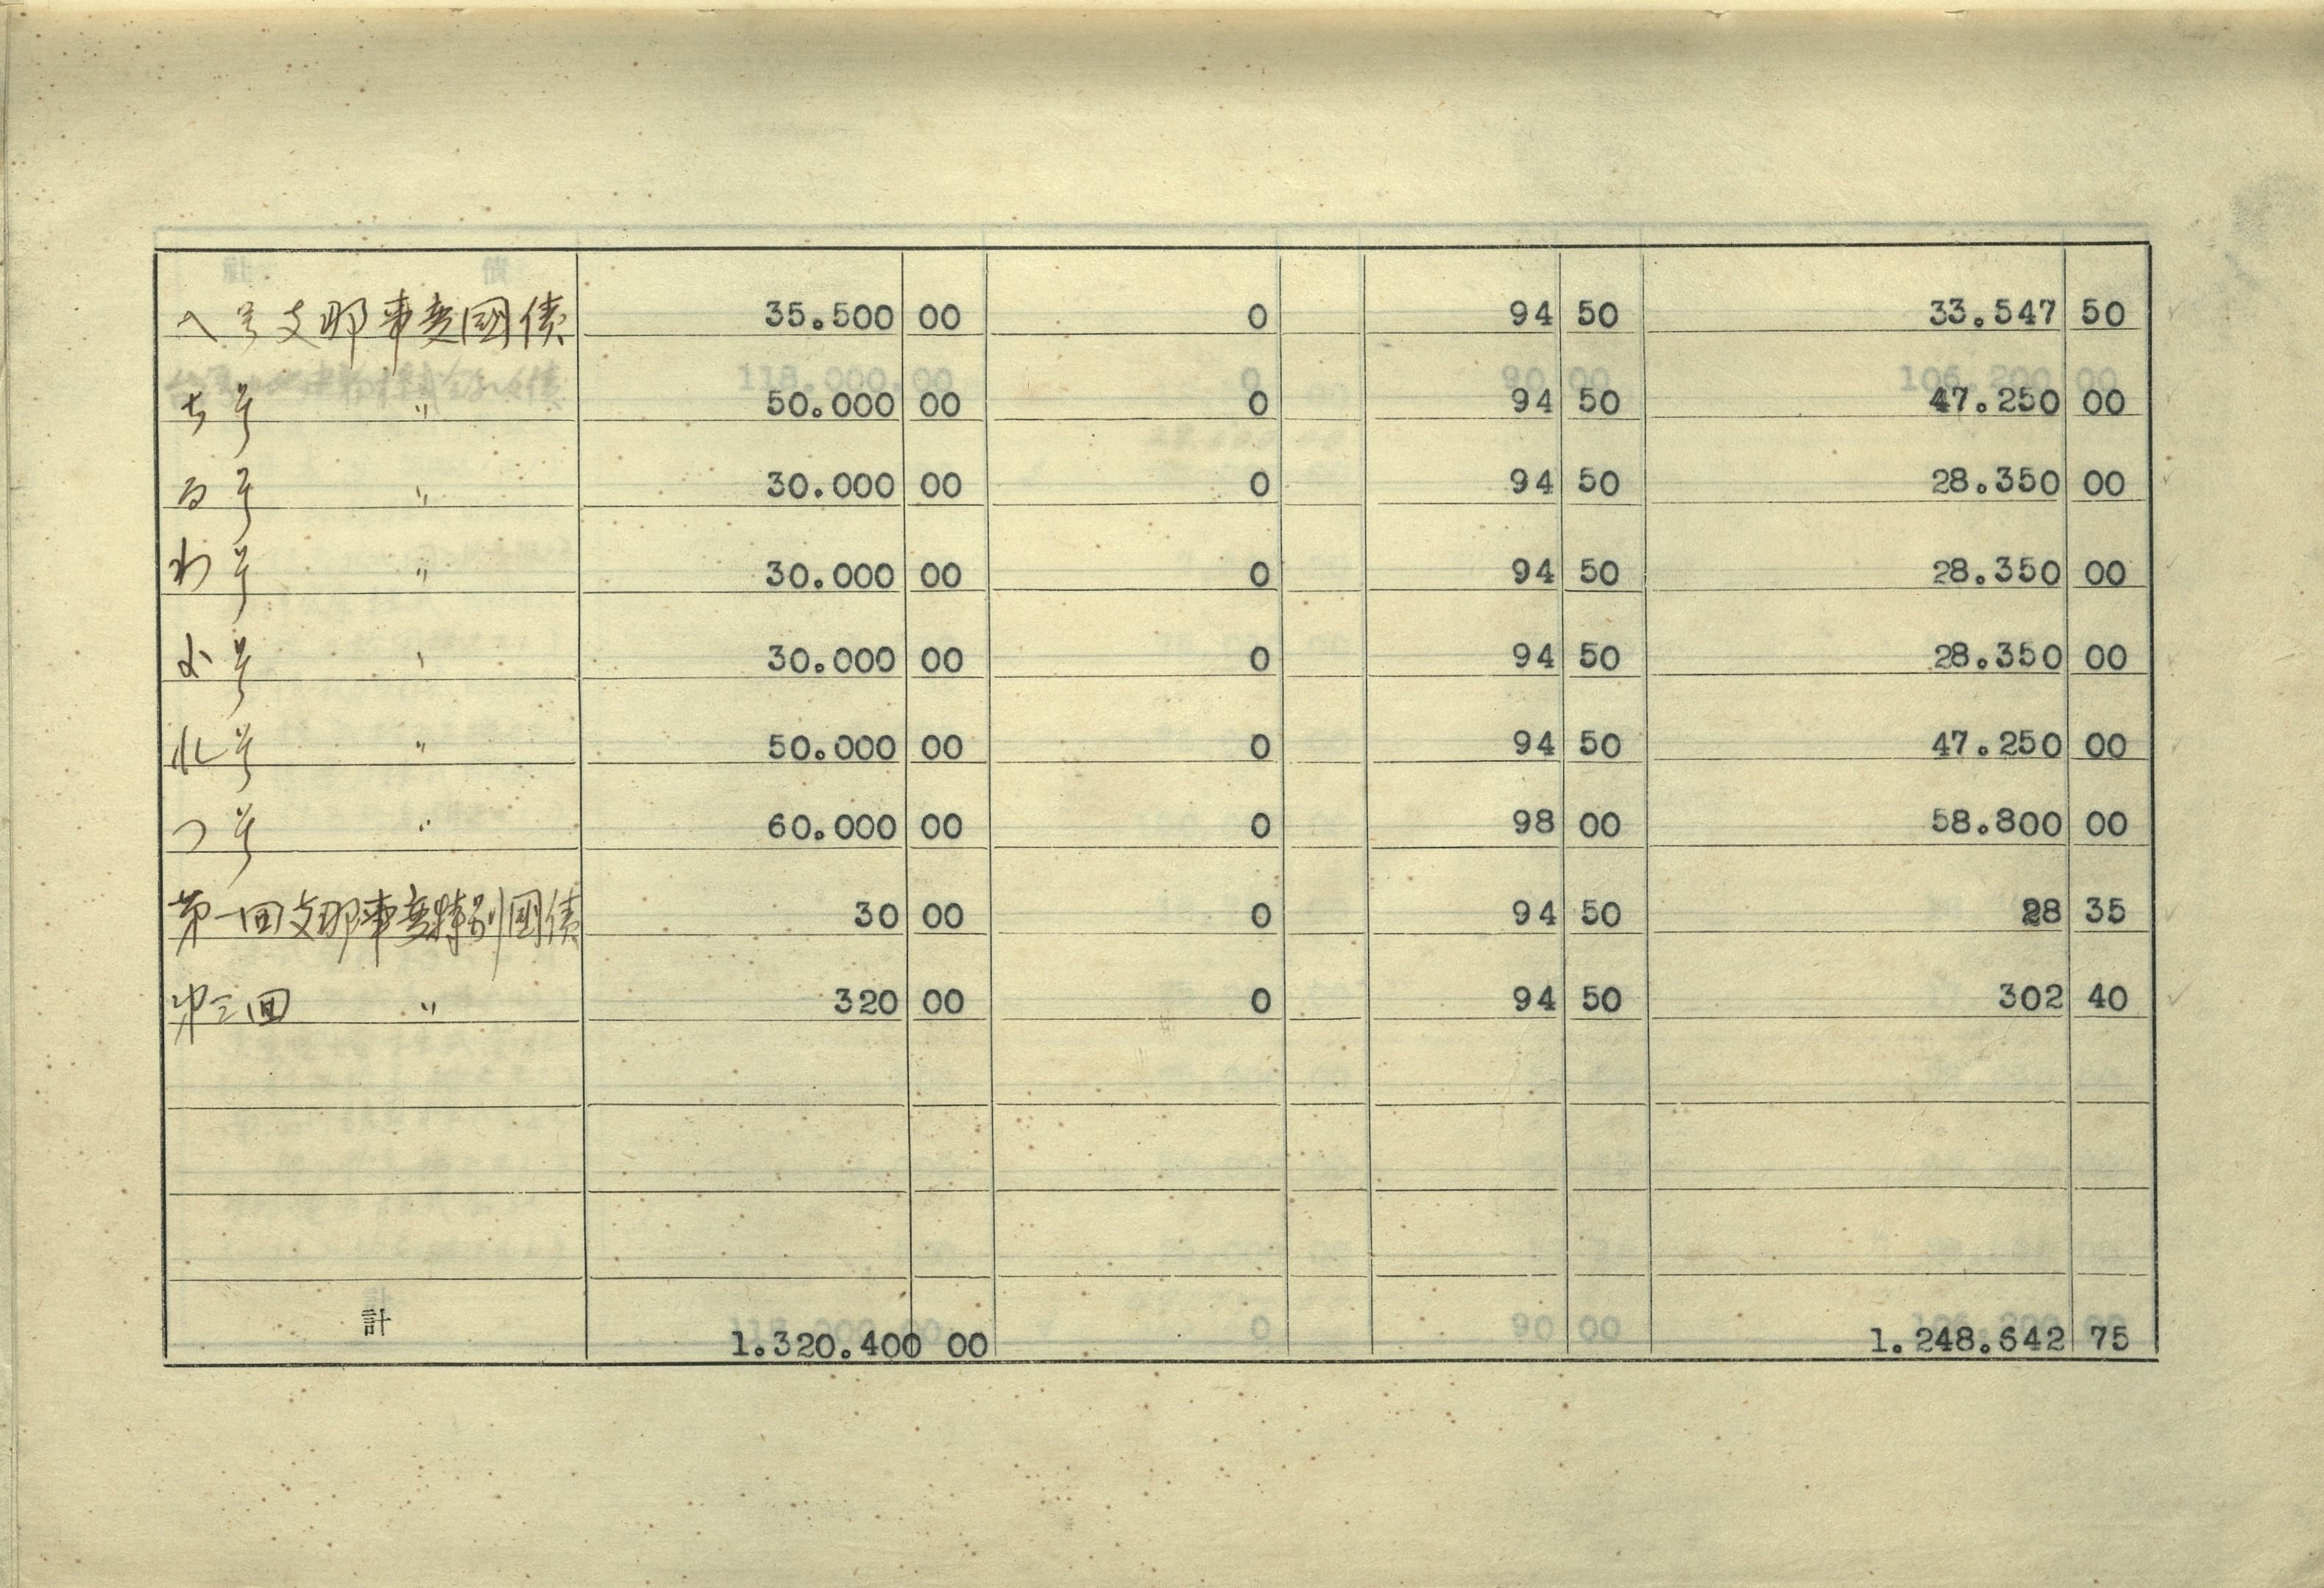 へ号支那事変国債 35.500 00 0 94 50 33.547 50
ち号 〃 50.000 00 0 94 50 47.250 00
る号 〃 30.000 00 0 94 50 28.350 00
わ号 〃 30.000 00 0 94 50 28.350 00
よ号 〃 30.000 00 0 94 50 28.350 00
れ号 〃 50.000 00 0 94 50 47.250 00
つ号 〃 60.000 00 0 98 00 58.800 00
第一回支那事変特別国債 30 00 0 94 50 28 35
第三回 〃 320 00 0 94 50 302 40
計 1.320.400 00 1.248.642 75